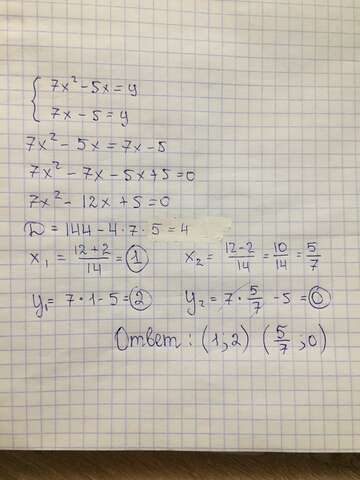 7x² - 5x = y
7x - 5 = y
7x² - 5x = 7x - 5
7x² - 7x - 5x + 5 = 0
7x² - 12x + 5 = 0
D = 144 - 4 · 7 · 5 = 4
x₁ = (12 + 2)/14 = 1 x₂ = (12 - 2)/14 = 10/14 = 5/7
y₁ = 7 · 1 - 5 = 2 y₂ = 7 · 5/7 - 5 = 0
Ответ: (1; 2) (5/7; 0)